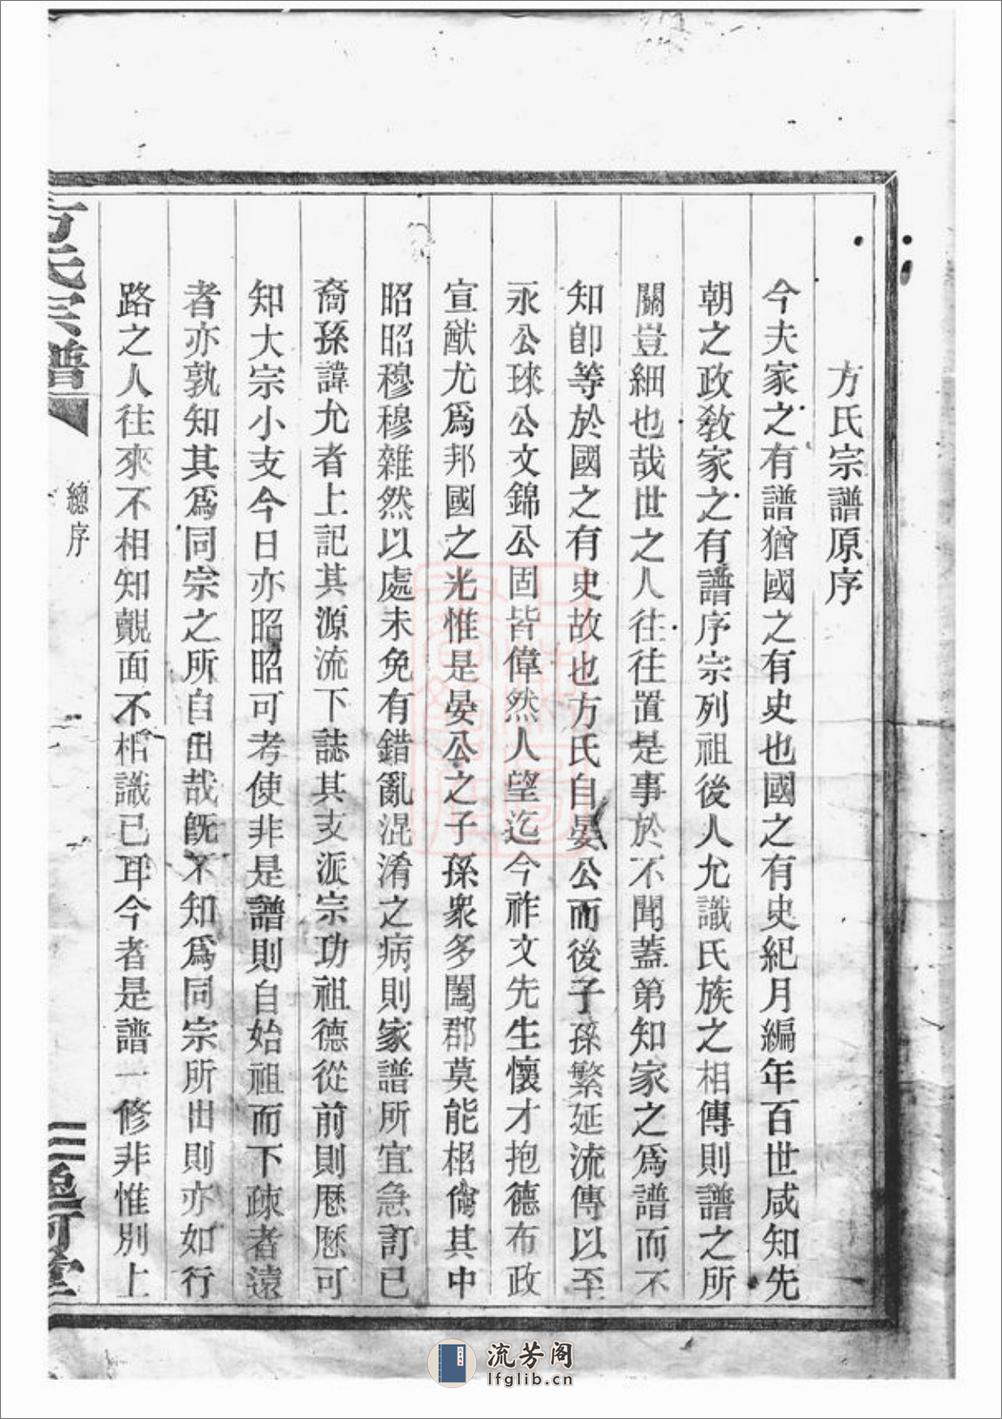 方氏宗譜原序
今夫家之有譜猶國之有史也國之有史紀月編年百世咸知先
朝之政敎家之有譜序宗列祖後人允識氏族之相傳則譜之所
關豈細也哉世之人往往置是事於不聞蓋第知家之爲譜而不
知卽等於國之有史故也方氏自晏公而後子孫繁延流傳以至
永公琜公文錦公固皆偉然人望迄今祚文先生懷才抱德布政
宣猷尤爲邦國之光惟是晏公之子孫衆多闔郡莫能相倫其中
昭昭穆穆雜然以處未免有錯亂混淆之病則家譜所宜急訂已
裔孫諱允者上記其源流下誌其支派宗功祖德從前則歷歷可
知大宗小支今日亦昭昭可考使非是譜則自始祖而下疎者遠
者亦孰知其爲同宗之所自出哉旣不知爲同宗所出則亦如行
路之人往來不相知覿面不相識已耳今者是譜一修非惟別上
方氏宗譜
總序
一
流芳阁
lfglib.cn